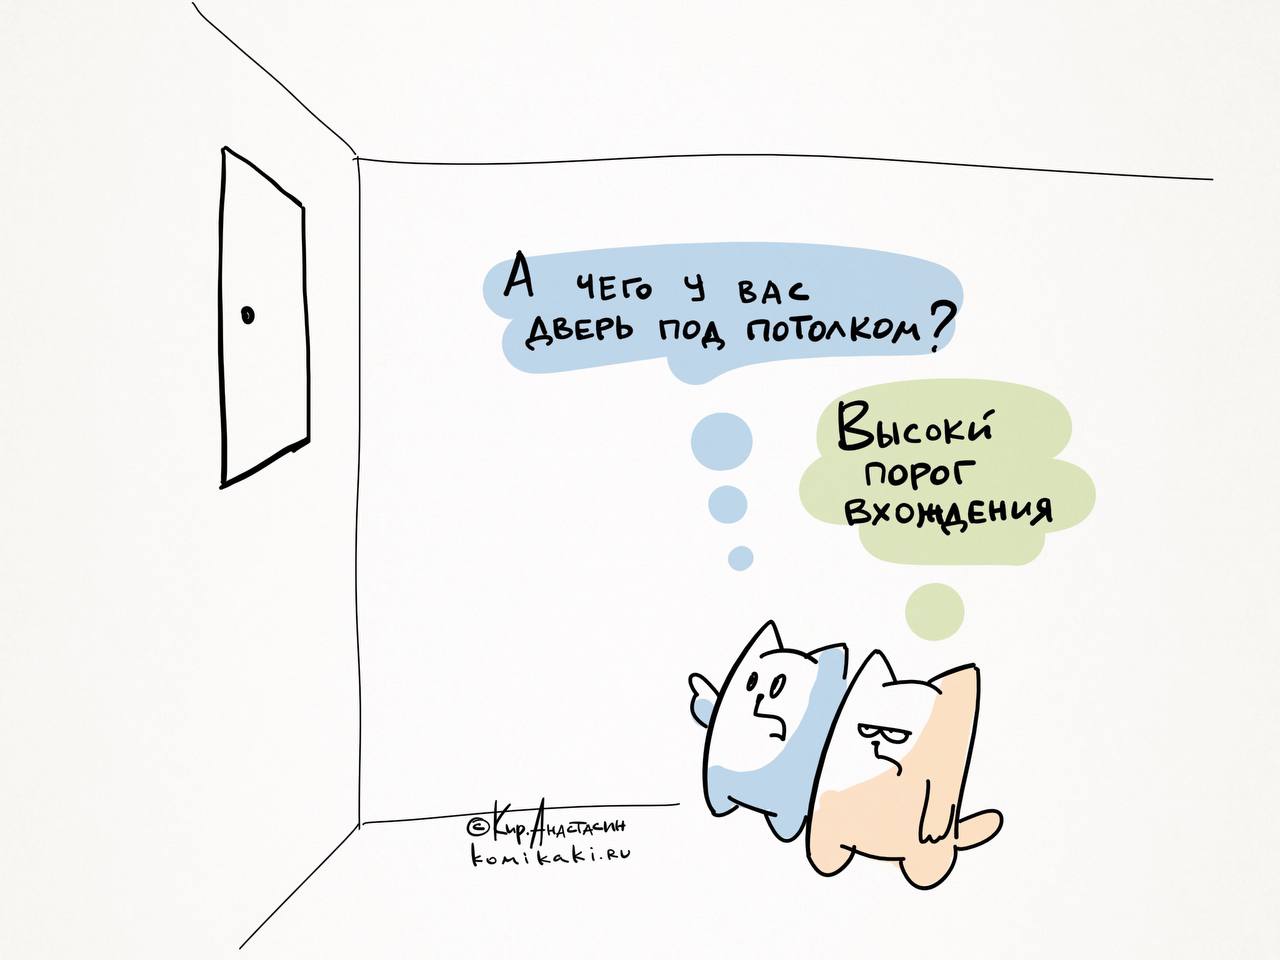 А чего у вас
дверь под потолком?
Высокий
порог
вхождения
© Кир.Анастасин
komikaki.ru